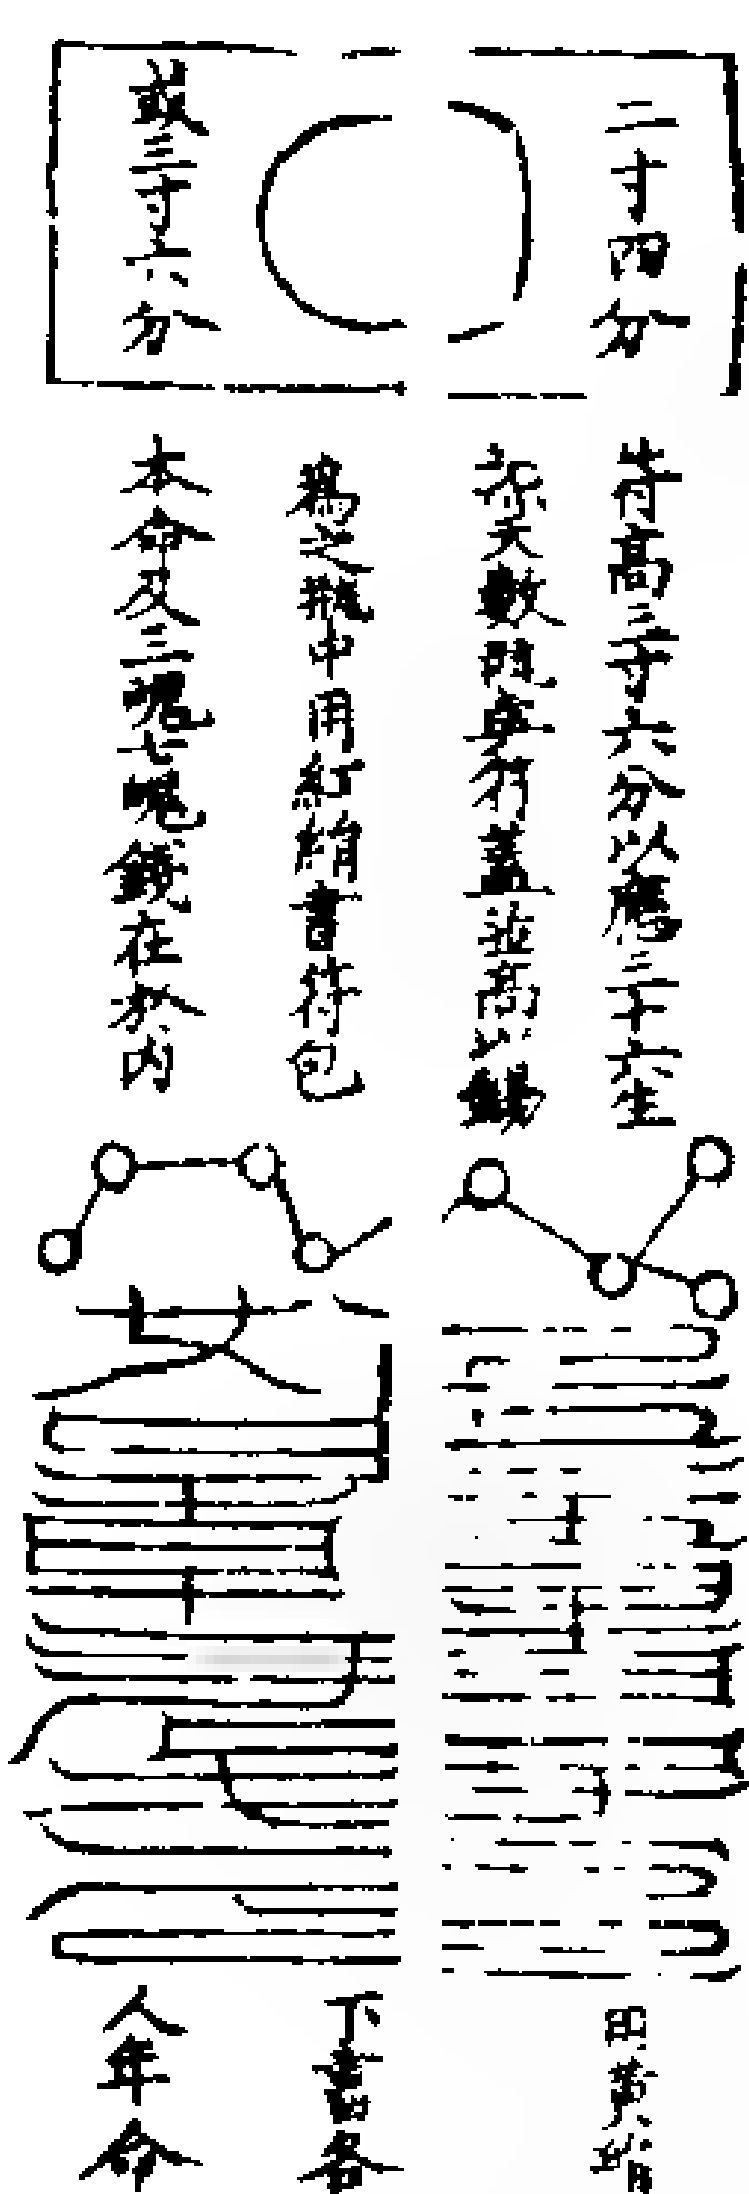 二寸四分
或三寸六分
符高三寸六分以應三十六生
炁天數既畢符蓋並高以錫
為之瓶中用紅絹書符包
本命及三魂七魄錢在於內
用黃絹
下書各
人年命